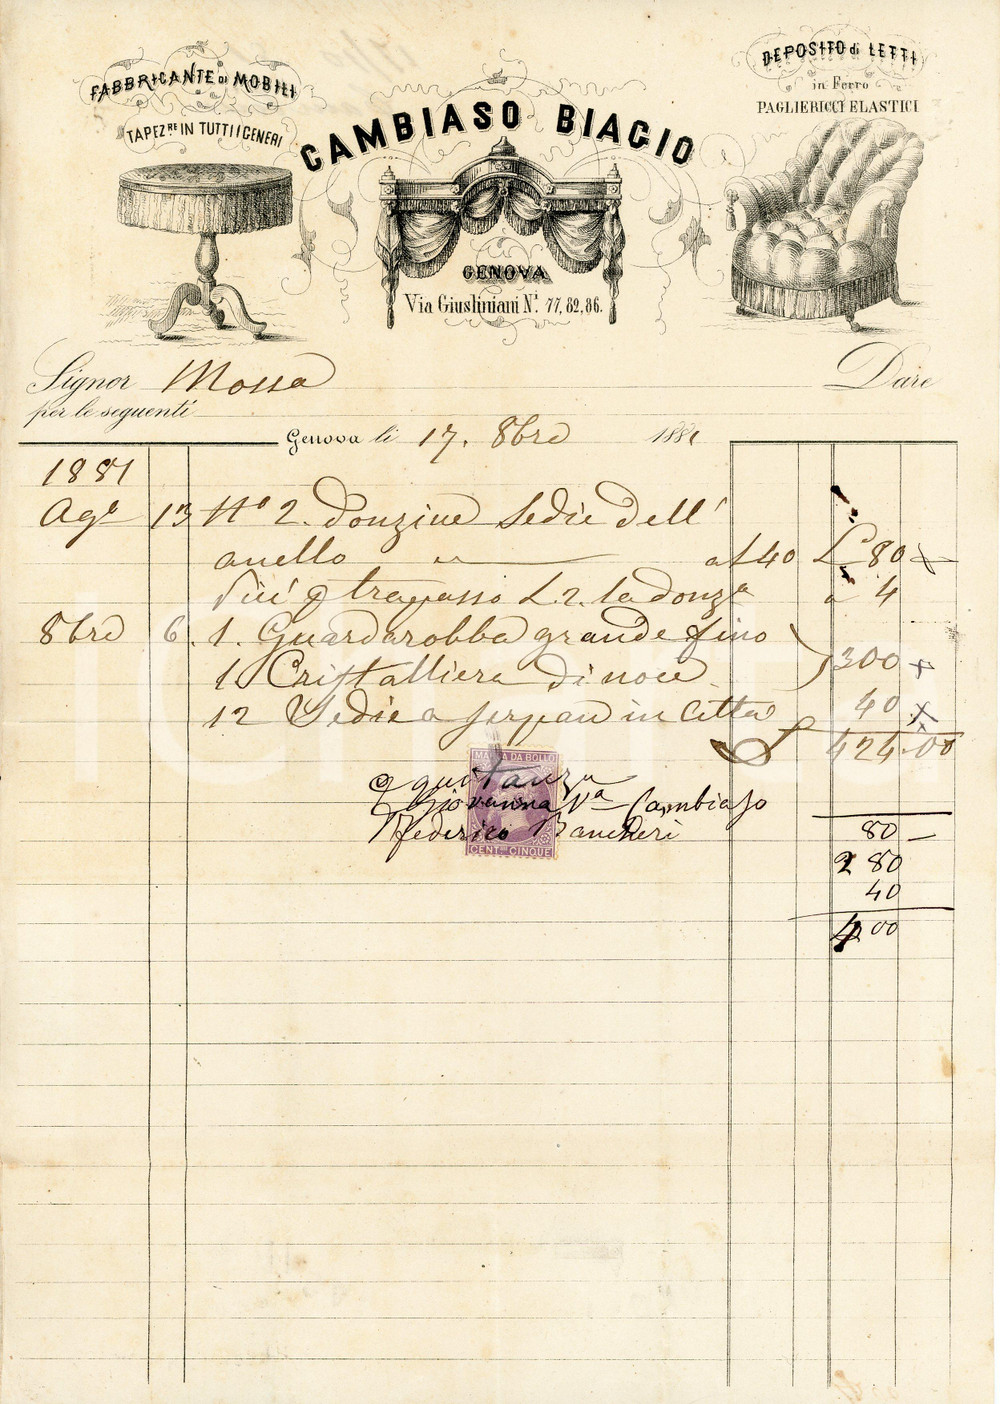 FABBRICANTE DI MOBILI
TAPEZ.RE IN TUTTI I GENERI
CAMBIASO BIAGIO
GENOVA
Via Giustiniani N.i 77, 82, 86.
DEPOSITO di LETTI
in Ferro
PAGLIERICCI ELASTICI
Signor Mossa Dare
per le seguenti
Genova li 17. 8bre 1881
1881
Ago 13 No 2. donzine Sedie dell'
anello a £ 40 £ 80
Più trapasso L. 2. la donza 4
8bre 6. 1. Guardarobba grande fino
1. Cristalliera di noce 300
12 Sedie a in Città 40
£ 424.00
MARCA DA BOLLO
CENT. CINQUE
quitanza
Giovanna Va Cambiaso
Federico Bancheri
80
280
40
400